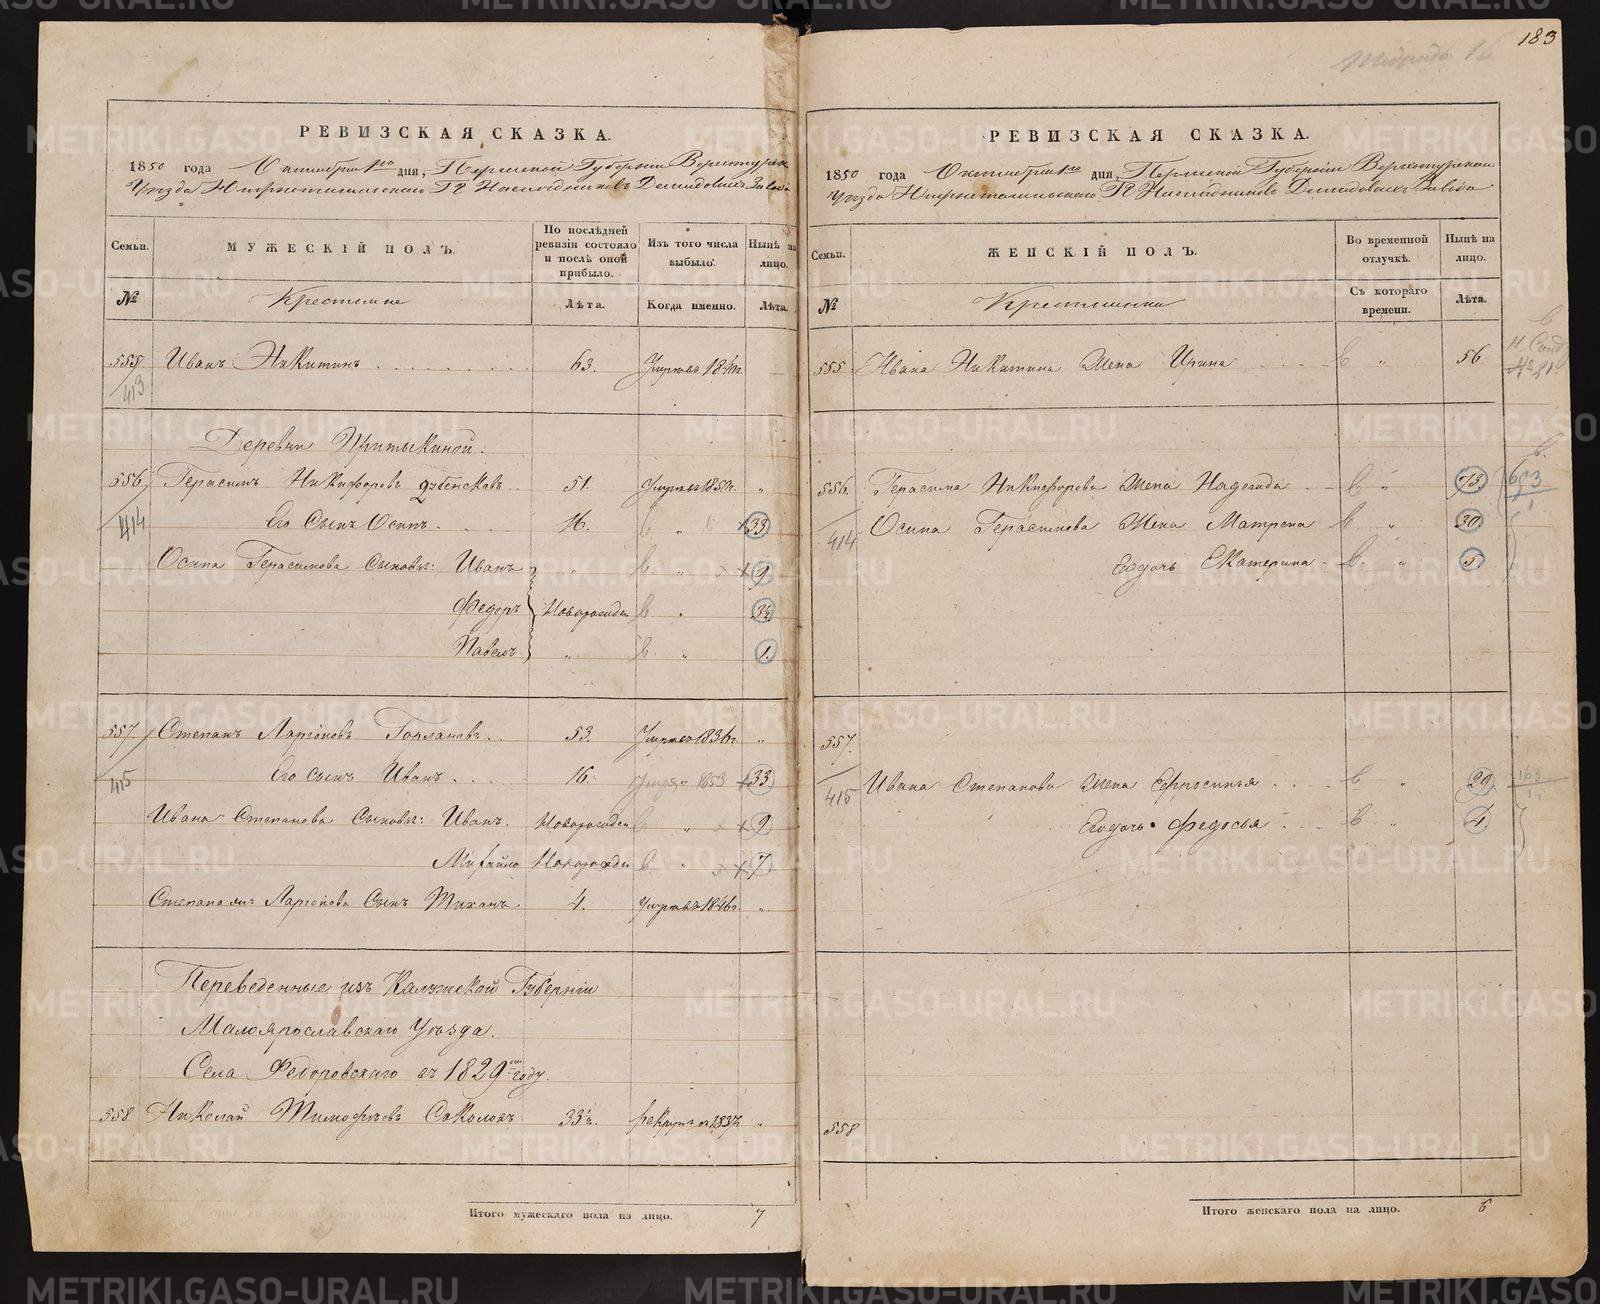 183
РЕВИЗСКАЯ СКАЗКА.
1850 года Октября 1го дня, Пермской Губернии Верхотурск
Уезда Нижнетагильскаго Гг Наследниковъ Демидовыхъ Завода
Семьи. МУЖЕСКІЙ ПОЛЪ. По послѣдней ревизіи состояло и послѣ оной прибыло. Изъ того числа выбыло. Нынѣ на лицо.
№ Крестьяне Лѣта. Когда именно. Лѣта.
555 Иванъ Никитинъ 63. Умеръ въ 184 г.
413
Деревни Притыкиной.
556 Герасимъ Никифоровъ 51. Умеръ 185 г. "
414 Его Сынъ Осипъ. 16. " 33
Осипа Герасимова Сыновья: Иванъ " " 9
Федоръ Новорожден " 3½
Павелъ " " 1.
557 Степанъ Ларіоновъ 53. Умеръ 1836 г. "
415 Его Сынъ Иванъ 16. " 1853 33
Ивана Степанова Сыновья: Иванъ. Новорожден " 9
Михайло Новорожден " 7
Степана Ларіонова Сынъ Тиханъ. 4. Умеръ въ 1846 г. "
Переведенные изъ Калужской Губерніи
Малоярославскаго Уѣзда.
Села Федоровскаго въ 1829мъ году.
558 Николай Тимофѣевъ Соколовъ 33½. рекруты въ 1837 "
Итого мужескаго пола на лицо. 7
РЕВИЗСКАЯ СКАЗКА.
1850 года Октября 1го дня, Пермской Губерніи Верхотурскаго
Уезда Нижнетагильскаго Гг Наследниковъ Демидовыхъ Завода
Семьи. ЖЕНСКІЙ ПОЛЪ. Во временной отлучкѣ. Нынѣ на лицо.
№ Крестьянки Съ котораго времени. Лѣта.
555 Ивана Никитина Жена Ирина " 56
556. Герасима Никифорова Жена Надежда " 73.
414 Осипа Герасимова Жена Матрена " 30
Его дочь Екатерина " 5
557.
415 Ивана Степанова Жена Ефросинья " 29
Его дочь Федосья " 4
558
Итого женскаго пола на лицо. 6
METRIKI.GASO-URAL.RU